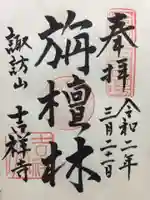 奉拝
令和二年
三月二十一日
旃檀林
諏訪山
吉祥寺